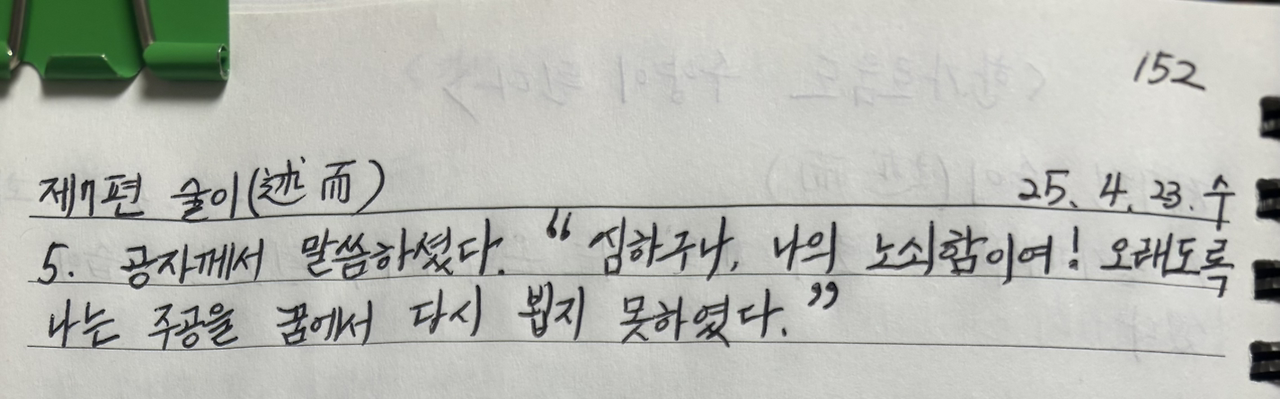 152
제7편 술이(述而) 25. 4. 23. 수
5. 공자께서 말씀하셨다. “심하구나, 나의 노쇠함이여! 오래도록
나는 주공을 꿈에서 다시 뵙지 못하였다.”